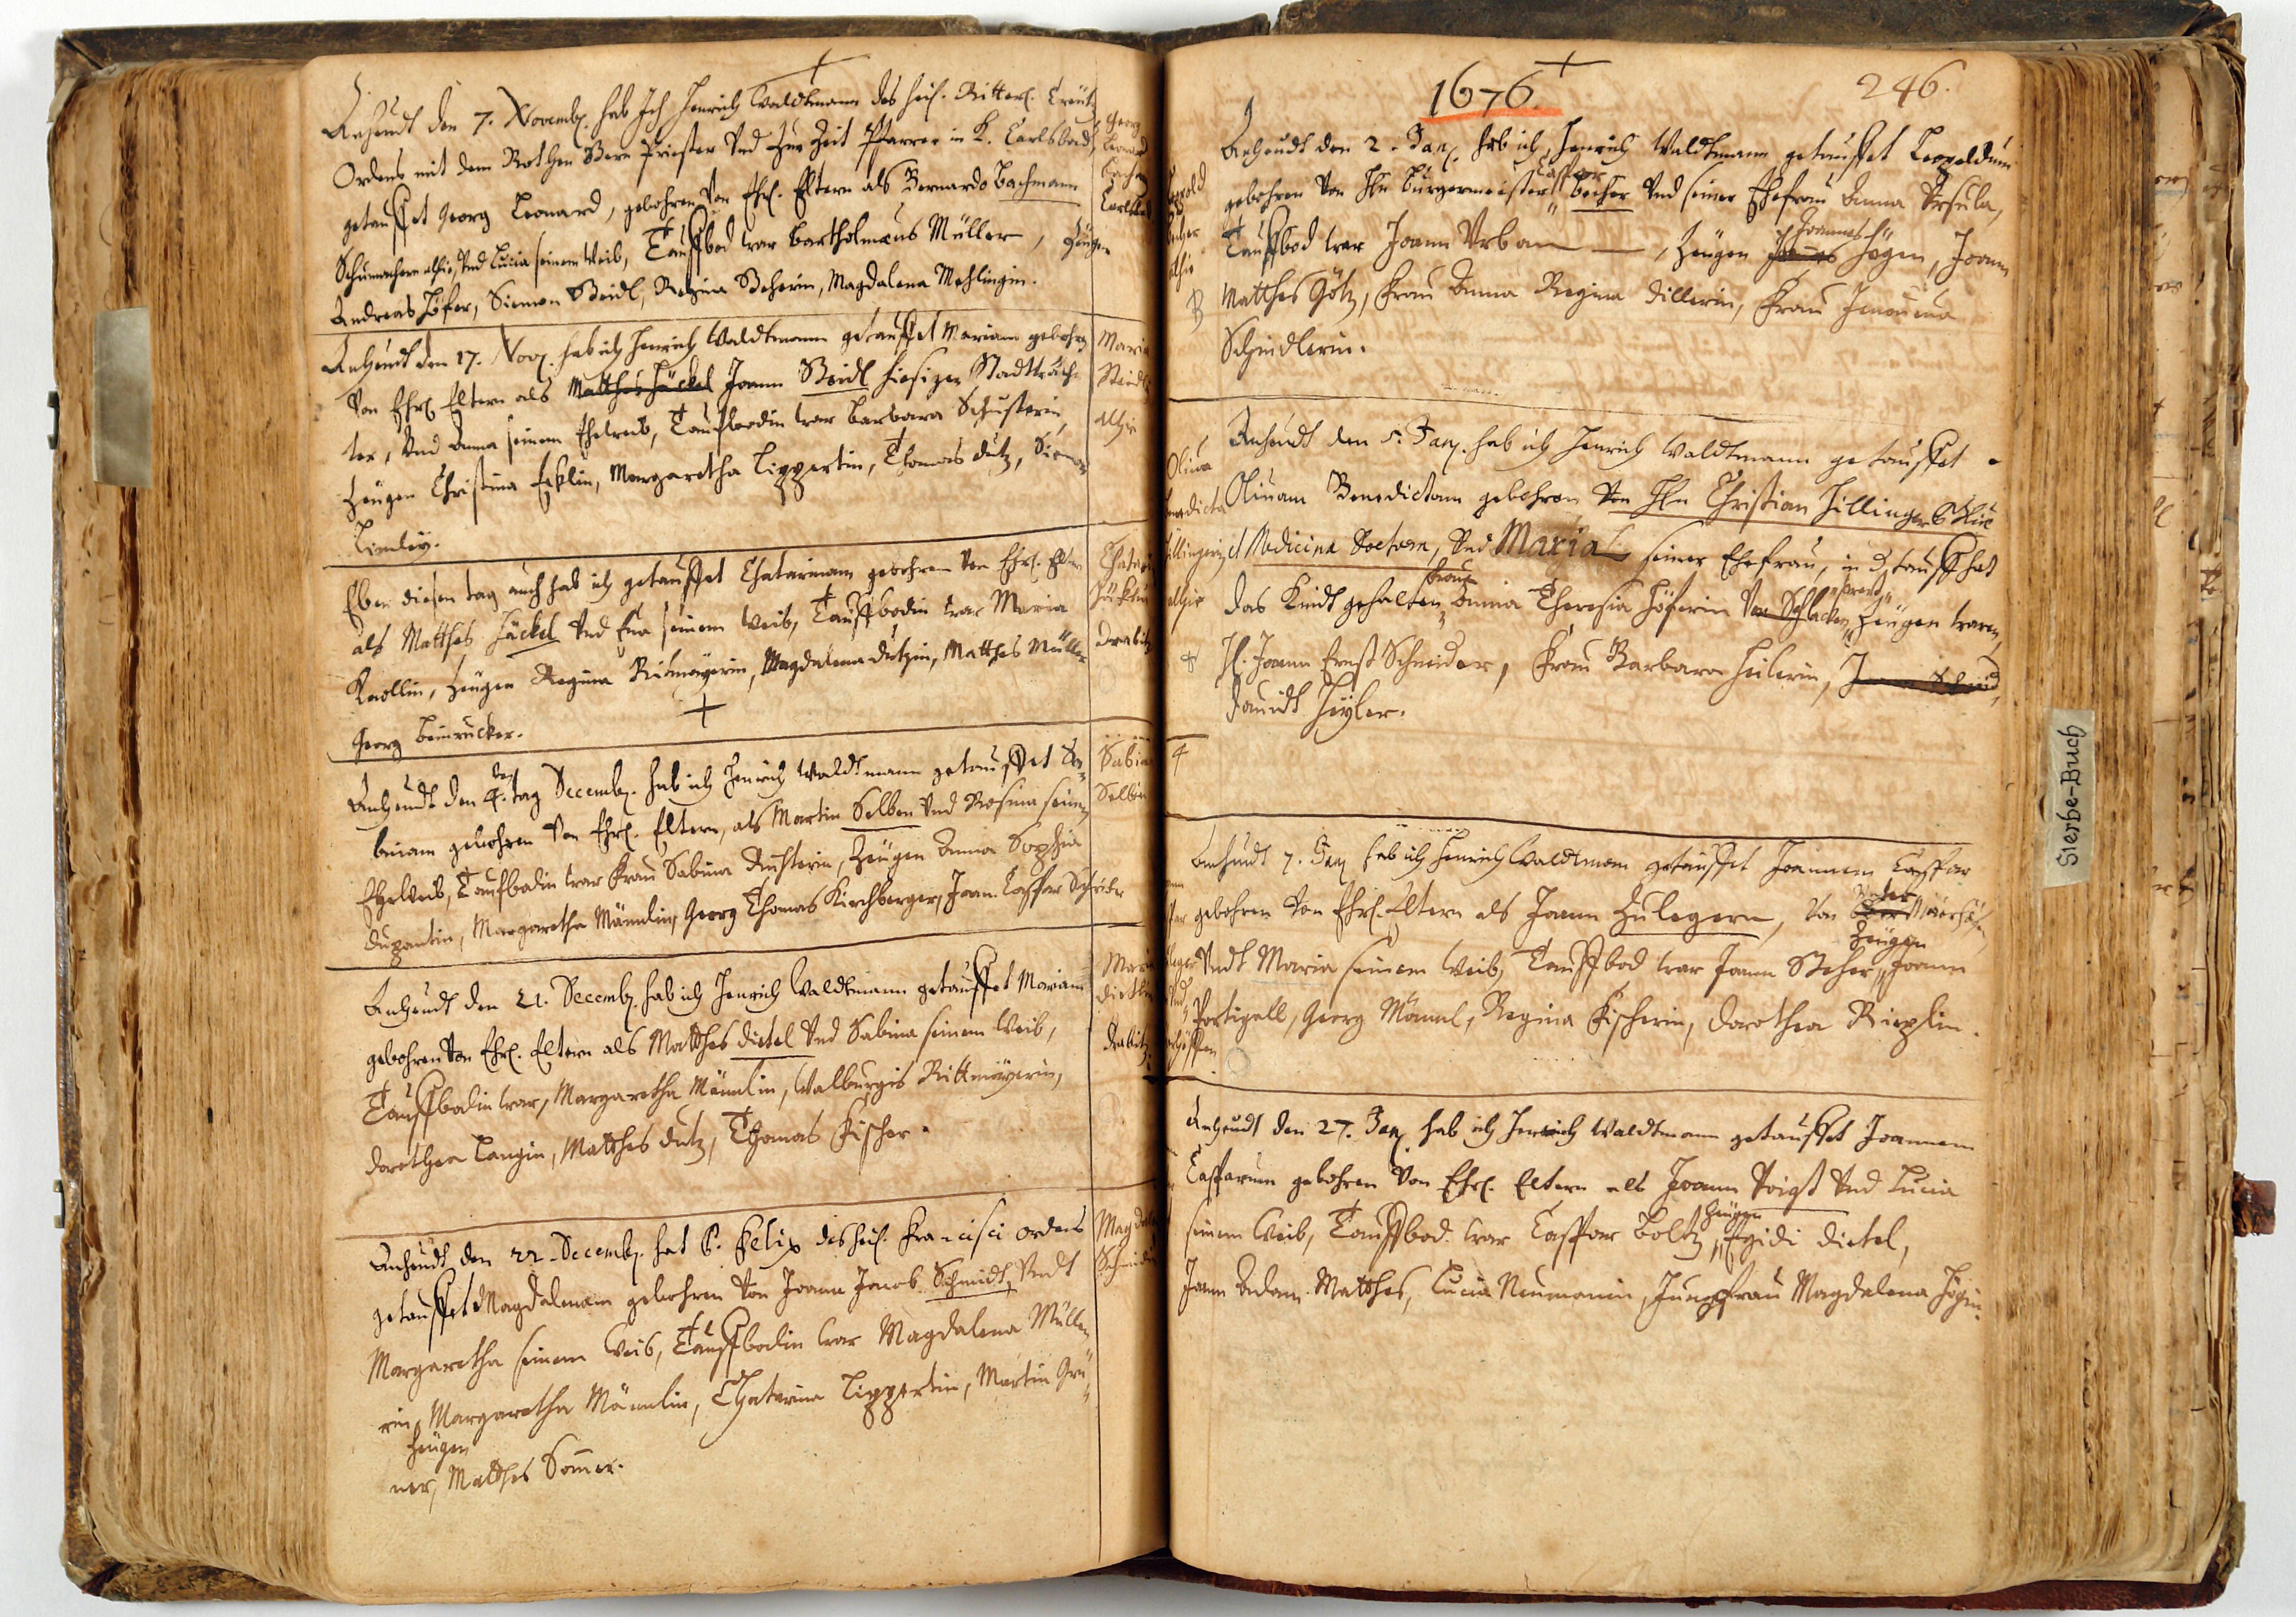 Anheudt den 7. Novemb. hab Ich Henrich Waldtmann des heil. Ritterl. Creütz
Ordens mit dem Rothen Stern Priester Und Zur Zeit Pfarrer in K. Carlsbad,
getauffet Georg Leonard, gebohren Von Ehrl. Eltern als Bernardo Bachmann
Schumachern alhie, Und Lucia seinem Weib, Tauffbod war Bartholmæus Müller, Zeügen
Andreas Höfer, Siemon Beidl, Regina Beherin, Magdalena Mehlingin.
Georg
Leonard
Carlsbad
Anheudt den 17. Nov. hab ich Henrich Waldtmann getauffet Mariam gebohren
Von Ehrl. Eltern als Matthes Häckel Joann Beidl hiesigen Stadtwäch-
ter, Und Anna seinem Eheweib, Tauffbodin war Barbara Schusterin,
Zeugen Christina Ecklin, Margaretha Lippertin, Thomas Dutz, Siemon
Maria
alhie
Eben diesen tag auch hab ich getauffet Chatarinam gebohren Von Ehrl. Eltern
als Matthes Häckel Und Eva seinem Weib, Tauffbodin war Maria
Knollin, Zeugen Regina Ritmayerin, Magdalena Dutzin, Matthes Müller
Georg Beinrucker.
Drabitz
Anheudt den 4. den tag Decemb. hab ich Henrich Waldtmann getauffet Sa-
binam gebohren Von Ehrl. Eltern, als Martin Selben Und Rosina seinem
Eheweib, Tauffbodin war Frau Sabina Richterin, Zeugen Anna Sophia
Dupantin, Margaretha Männlin, Georg Thomas Kirchberger, Joan. Casspar Schrider
Sabina
Selbin
Anheudt den 21. Decemb. hab ich Henrich Waldtmann getauffet Mariam
gebohren Von Ehrl. Eltern als Matthes Dietel Und Sabina seinem Weib,
Tauffbodin war, Margaretha Männlin, Walburgis Rittmayerin,
Dorothea Langin, Matthes Dutz, Thomas Fischer.
Maria
Dietlin
Drabitz
Anheudt den 22. Decemb. hat P. Felix des heil. Francisci ordens
getauffet Magdalenam gebohren Von Joann Jacob Schmidt, Undt
Margaretha seinem Weib, Tauffbodin war Magdalena Mülle-
rin, Margaretha Männlin, Chatarina Lippertin, Martin Grü-
Zeugen
ner, Matthes Somer.
Magdalena
Schmidin
1676.
246.
Anheudt den 2. Jan. hab ich, Henrich Waldtmann getauffet Leopoldum
Casspar
gebohren Von Hln Bürgermeister Becher Und seiner Ehefrau Anna Ursula,
Joannes
Tauffbod war Joann Urban, Zeugen Högen, Joann
Matthes Götz, Frau Anna Regina Dillerin, Frau
Schindlerin.
Leopold
Becher
alhie
Anheudt den 5. Jan. hab ich Henrich Waldtmann getauffet
Olivam Benedictam gebohren Von Hln Christian Hillinger Phil
et Medicinæ Doctorn, Und Maria seiner Ehefrau, in d tauff hat
frau
das Kindt gehalten Anna Theresia Höferin Von Schlackenwerth Zeugen waren,
H. Joann Ernst Schneider, Frau Barbara Heilerin,
Davidt Heyler.
Oliva
Benedicta
Hillingerin
alhie
Anheudt 7. Jan hab ich Henrich Waldtman getauffet Joannem Casspar
gebohren Von Ehrl. Eltern als Joann Zulegern, Von
Zeugen
Undt Maria seinem Weib, Tauffbod war Joann Beher, Joann
Portigall, Georg Männl, Regina Fischerin, Dorothea Riepplin.
Anheudt den 27. Jan. hab ich Henrich Waldtmann getauffet Joannem
Cassparum gebohren Von Ehrl. Eltern als Joann Voigt Und Lucia
Zeugen
seinem Weib, Tauffbod. war Casspar Boltz, Egidi Dietel,
Joann Adam Matthes, Lucia Neumanin, Jungfrau Magdalena Högin.
Sterbe-Buch